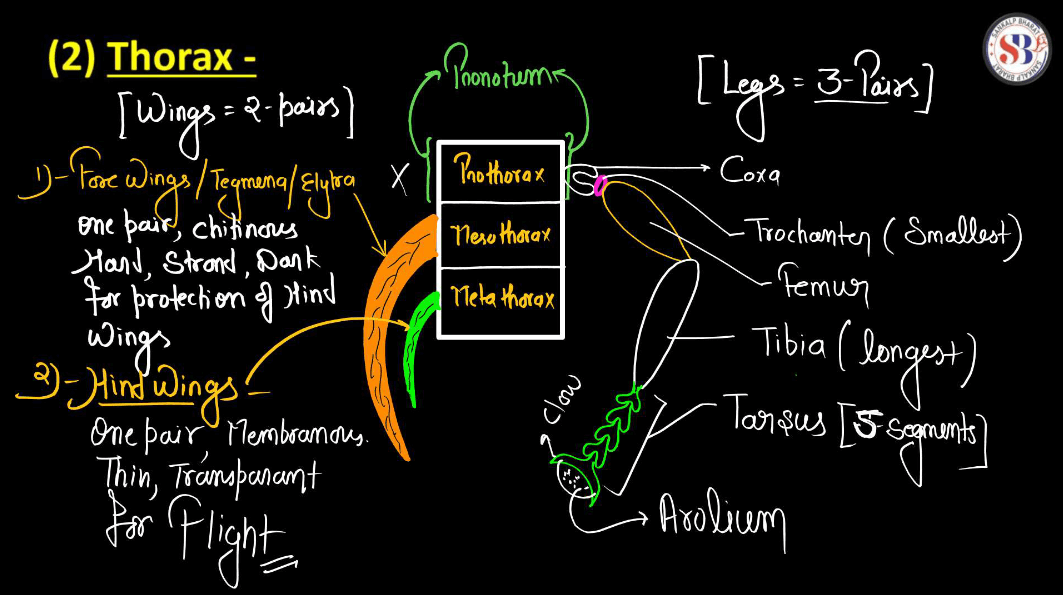 (2) Thorax -
[Wings = 2-pairs]
1)- Fore Wings/Tegmena/Elytra
one pair, chitinous
Hard, Strond, Dark
for protection of Hind
Wings
2)- Hind Wings -
One pair, Membranous.
Thin, Transparant
for Flight
Pronotum
X
Prothorax
Mesothorax
Metathorax
[Legs = 3-Pairs]
Coxa
Trochanter (Smallest)
Femur
Tibia (longest)
Tarsus [5-segments]
Claw
Arolium
SANKALP BHARAT
SB
SANKALP BHARAT